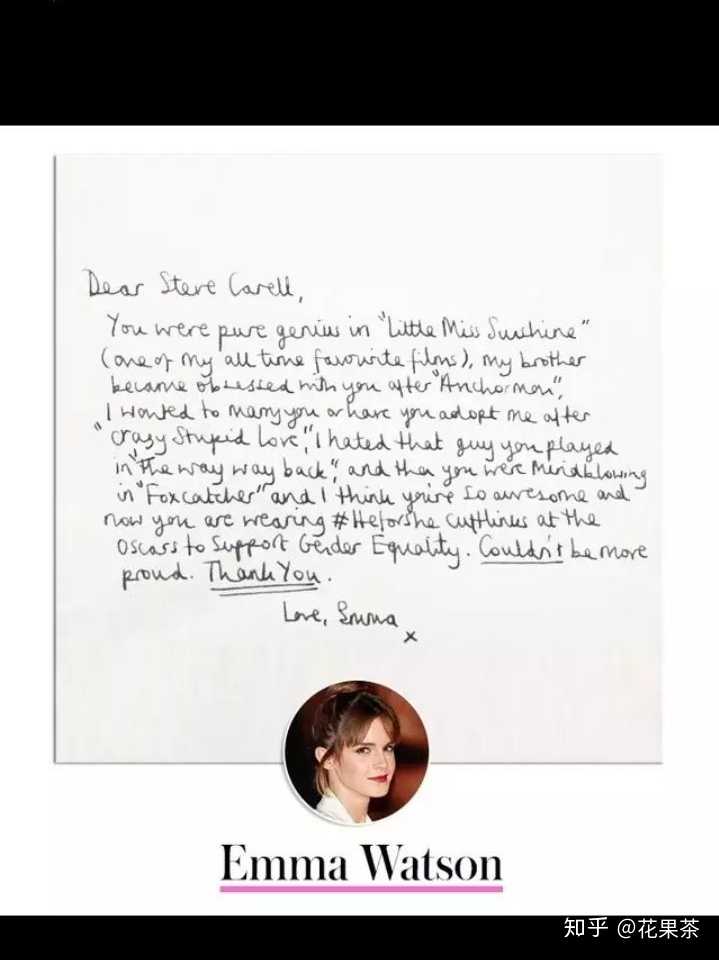 Dear Steve Carell,
You were pure genius in "Little Miss Sunshine"
(one of my all time favourite films), my brother
became obsessed with you after "Anchorman",
I wanted to marry you or have you adopt me after
"Crazy Stupid Love", I hated that guy you played
in "The way way back", and then you were Mindblowing
in "Foxcatcher" and I think you're so awesome and
now you are wearing #Heforshe cufflinks at the
Oscars to Support Gender Equality. Couldn't be more
proud. Thank You.
Love, Emma
x
Emma Watson
知乎 @花果茶